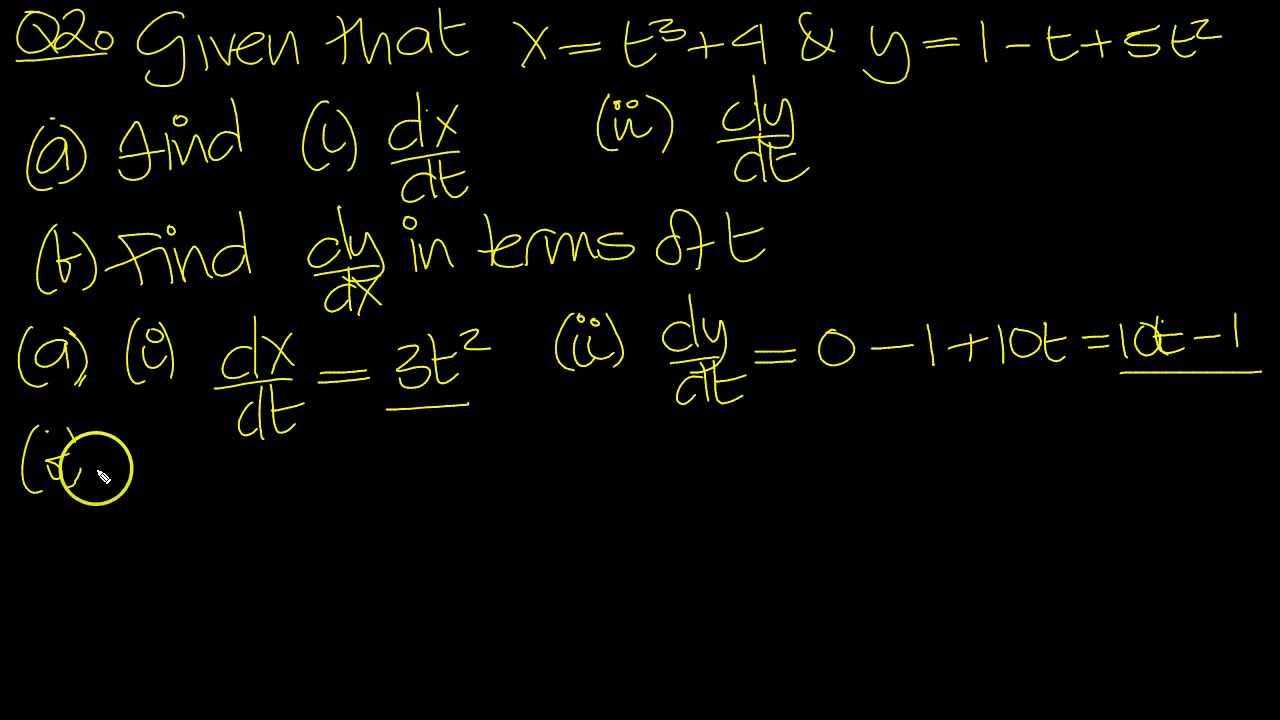 Q2. Given that x = t³ + 4 & y = 1 - t + 5t²
(a) find (i) dx/dt (ii) dy/dt
(b) Find dy/dx in terms of t
(a) (i) dx/dt = 3t² (ii) dy/dt = 0 - 1 + 10t = 10t - 1